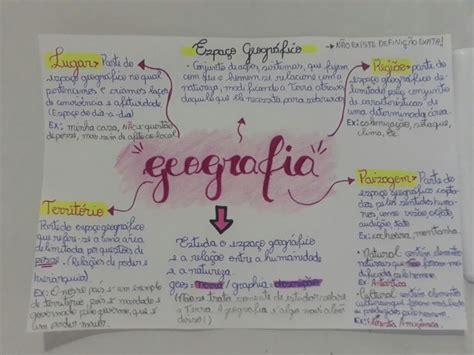 Espaço Geográfico
→ NÃO EXISTE DEFINIÇÃO EXATA!
• Conjunto de ações, sistemas, que fazem
com que o homem se relacione com a
natureza, modificando a Terra através
daquilo que ele necessita para sobreviver
Lugar → Parte do
espaço geográfico no qual
pertencemos e criamos laços
de convivência e afetividade
(Espaço do dia-a-dia)
Ex: minha casa, NÃO é questão
de posse, mas sim de afeto ao local
Região → parte do
espaço geográfico de-
limitado pelo conjunto
de características de
uma determinada área.
Ex: colonização, sotaque,
clima, etc
geografia
Território
Parte do espaço geográfico
que refere-se a uma área
delimitada por questões de
posse. (Relações de poder e
hierarquia)
Ex: O nosso país é um exemplo
de território, pois é mandado e
governado pelo governo, que é
um poder maior.
Estuda o espaço geográfico
e a relação entre a humanidade
e a natureza
geo = Terra / graphia = descrição
(Não se trata somente de estudar sobre
a Terra. A geografia é algo mais além
disso!)
Paisagem → Parte do
espaço geográfico capta-
dos pelos sentidos huma-
nos como visão, olfato,
audição, tato
Ex: cachoeira, montanha.
• Natural: contém elementos
naturais que não foram mo-
dificados pelo homem
Ex: Antártica
• Cultural: contém elementos
culturais que foram modificados
pelo homem. Ex: Floresta Amazônica.